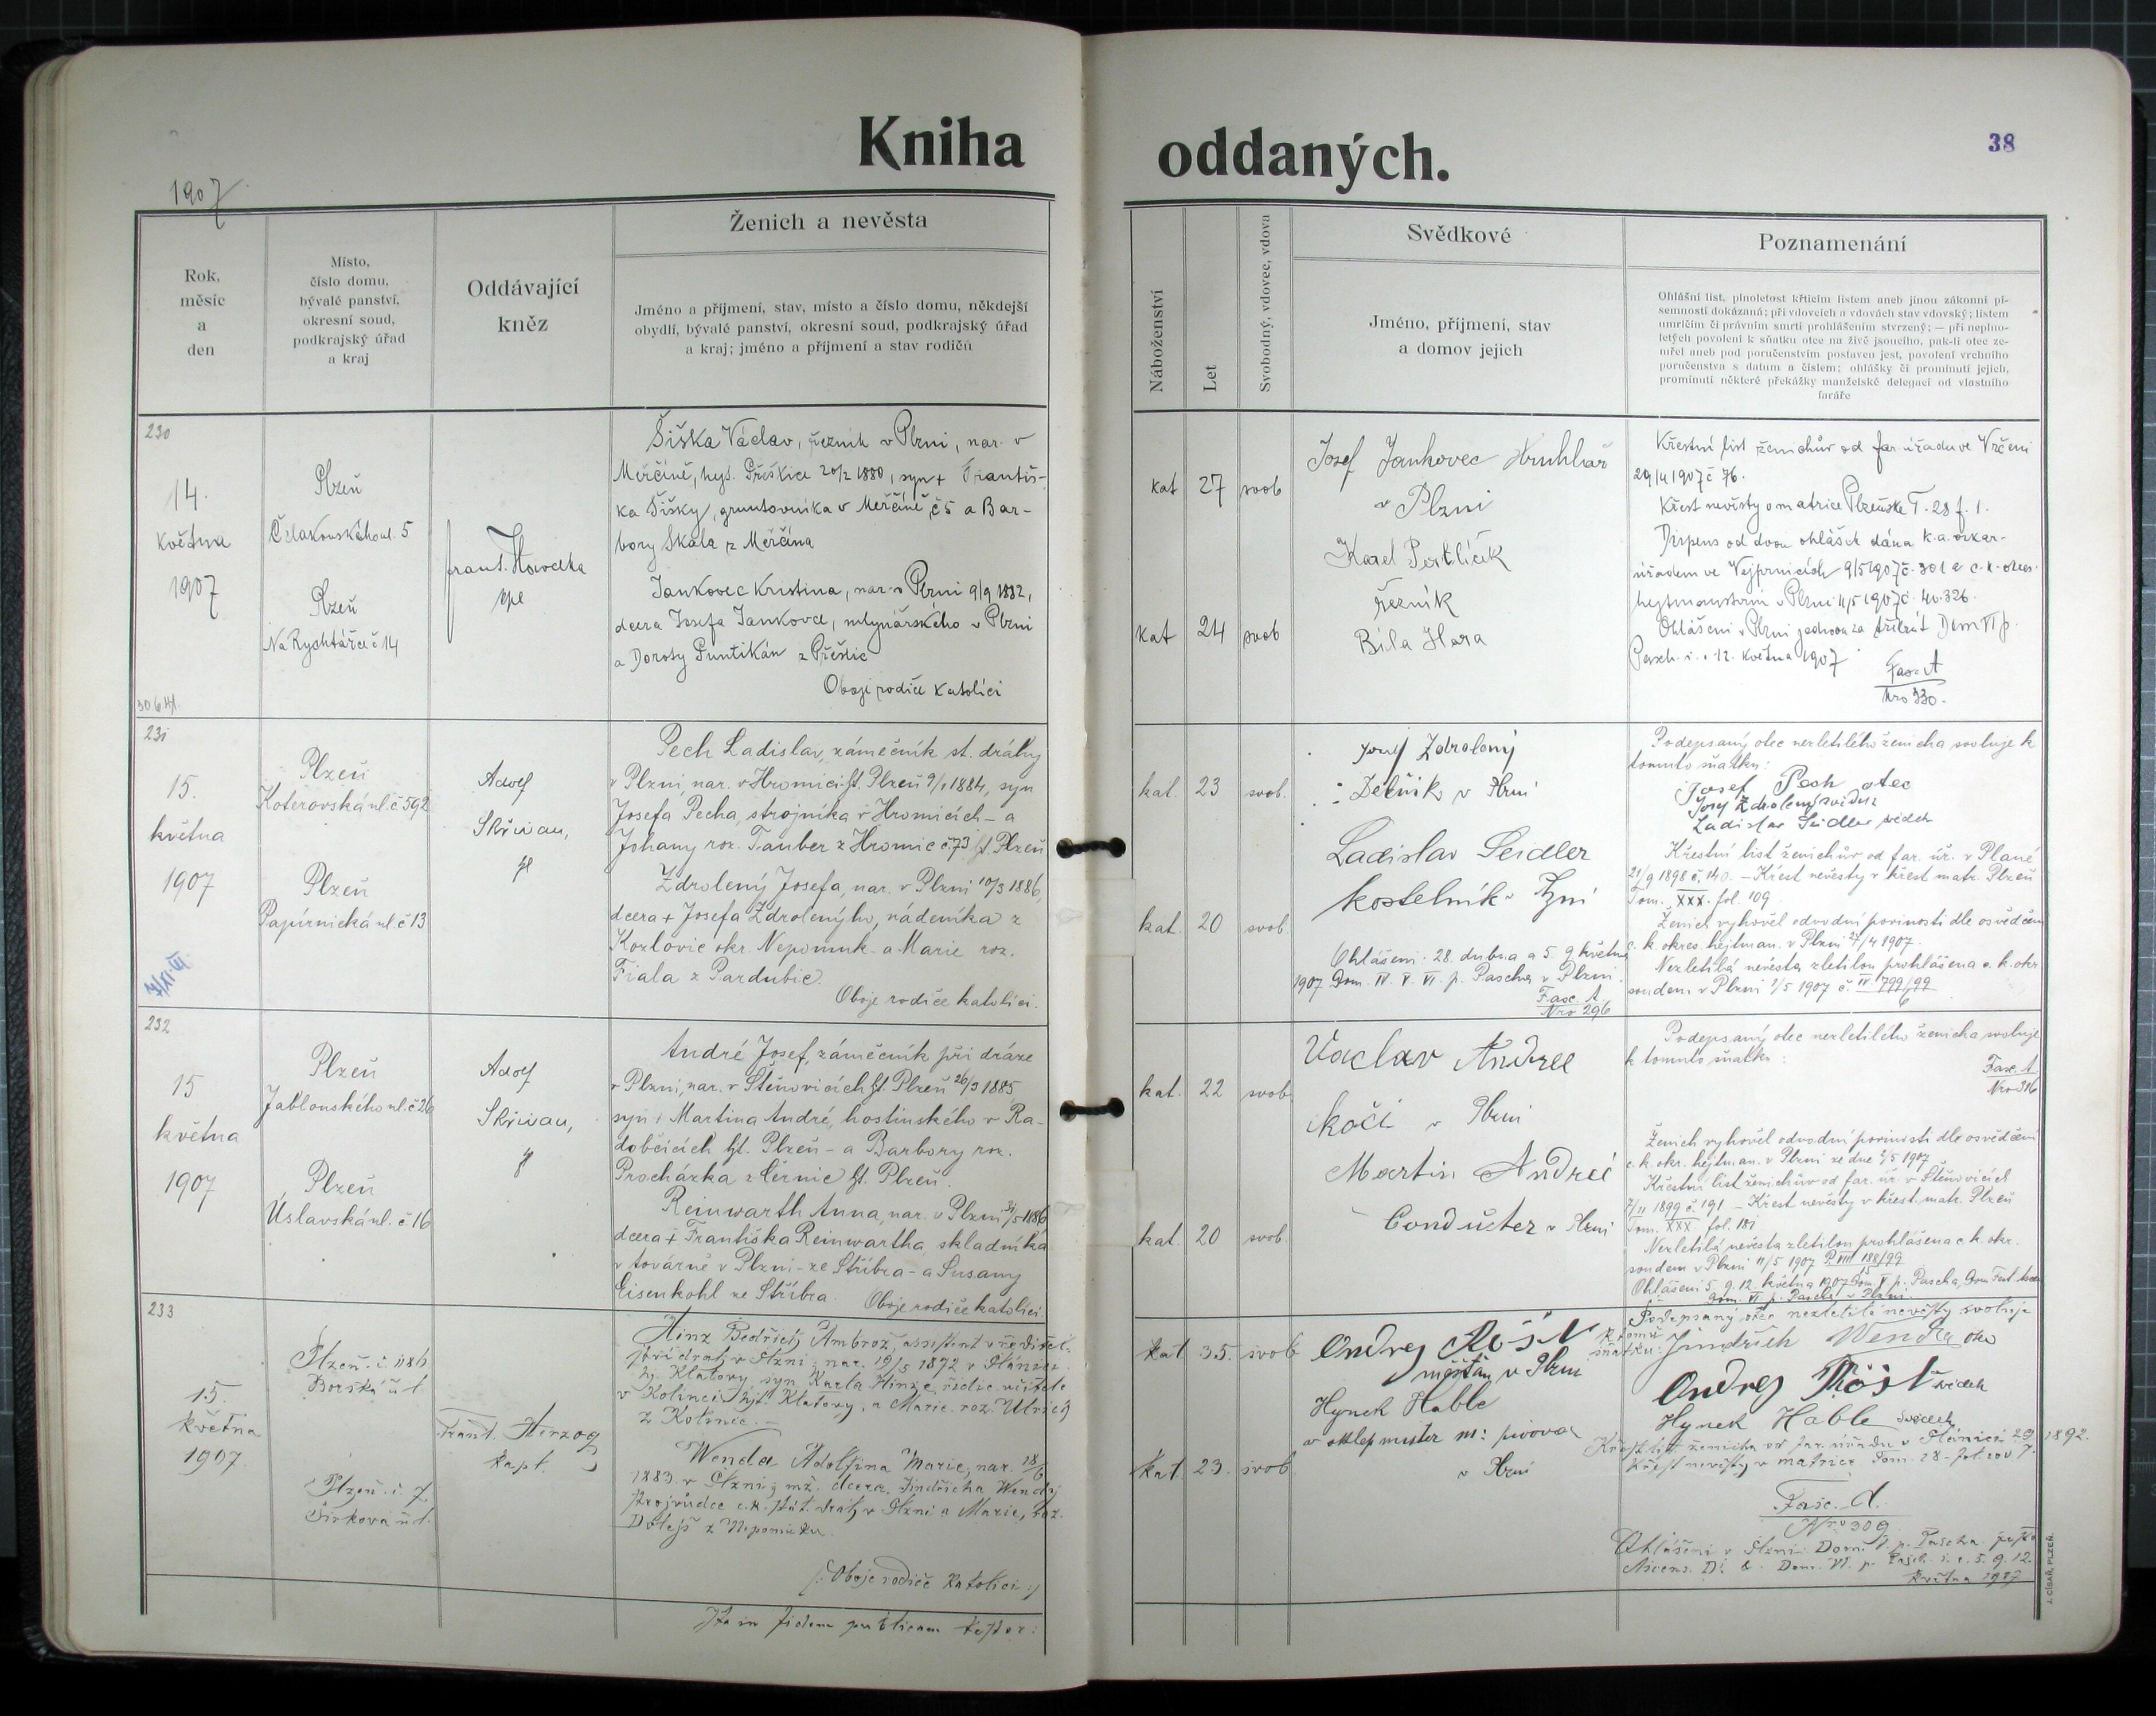 Kniha oddaných.
38
1907
Rok,
měsíc
a
den
Místo,
číslo domu,
bývalé panství,
okresní soud,
podkrajský úřad
a kraj
Oddávající
kněz
Ženich a nevěsta
Jméno a příjmení, stav, místo a číslo domu, někdejší
obydlí, bývalé panství, okresní soud, podkrajský úřad
a kraj; jméno a příjmení a stav rodičů
Náboženství
Let
Svobodný, vdovec, vdova
Svědkové
Jméno, příjmení, stav
a domov jejich
Poznamenání
Ohlášní list, plnoletost křticím listem aneb jinou zákonní pí-
semností dokázaná; při vdovcích a vdovách stav vdovský; listem
umrlčím či právním smrti prohlášením stvrzený; — při neplno-
letých povolení k sňatku otce na živě jsoucího, pak-li otec ze-
mřel aneb pod poručenstvím postaven jest, povolení vrchního
poručenstva s datum a číslem; ohlášky či prominutí jejich,
prominutí některé překážky manželské delegací od vlastního
faráře
230
14.
května
1907
Plzeň
Čelakovského ul. 5
Plzeň
Na Rychtářce č 14
Frant. Hovorka
Šiška Václav, řezník v Plzni, nar. v
Měrčíně, hejt. Přeštice 20/2 1880, syn + Františ-
ka Šišky, gruntovníka v Měrčíně č 5 a Bar-
bory Skala z Měrčína
Jankovec Kristina, nar. v Plzni 9/9 1882,
dcera Josefa Jankovce, mlynářského v Plzni
a Doroty Puntikán z Přeštic
Oboji rodiče katolíci
kat 27 svob
kat 24 svob
Josef Jankovec
v Plzni
Karel
řezník
Bílá Hora
Křestní list ženichův od far. úřadu ve Vrčeni
29/4 1907 č 76.
Křest nevěsty v matrice Plzeňské T. 28 f. 1.
Dispens od dvou ohlášek dána k. a. vikar-
úřadem ve Vejprnicích 9/5 1907 č. 301 a c. k. okres.
hejtmanstvím v Plzni 11/5 1907 č. 40.326.
Ohlášeni v Plzni jednou za třikrát Dom VI p.
Pasch. i. e. 12. května 1907
Fasc A
Nro 330.
231
15.
května
1907
Plzeň
Koterovská ul. č 592
Plzeň
Papírnická ul. č 13
Adolf
Skřivan,
Pech Ladislav, zámečník st. dráhy
v Plzni, nar. v Hromici hjt. Plzeň 9/1 1884, syn
Josefa Pecha, strojníka v Hromicích - a
Johany roz. Tauber z Hromic č. 73 hjt. Plzeň
Zdrolený Josefa, nar. v Plzni 10/3 1886,
dcera + Josefa Zdroleného, nádeníka z
Kozlovic okr. Nepomuk - a Marie roz.
Fiala z Pardubic.
Oboje rodiče katolíci.
kat. 23 svob.
kat. 20 svob.
Josef Zdrolený
Dělník v Plzni
Ladislav Seidler
kostelník v Plzni
Ohlášeni: 28. dubna a 5. 9 května
1907 Dom. IV. V. VI. p. Pascha v Plzni
Fasc. A.
Nro 296
Podepsaný otec nezletilého ženicha svoluje k
tomuto sňatku:
Josef Pech otec
Josef Zdrolený svědek
Ladislav Seidler svědek
Křestní list ženichův od far. úř. v Plané
21/9 1898 č. 140. - Křest nevěsty v křest. matr. Plzeň
Tom. XXX. fol. 109
Ženich vyhověl odvodní povinnosti dle osvědčení
c. k. okres. hejtman. v Plzni 24/4 1907.
Nezletilá nevěsta zletilou prohlášena c. k. okr.
soudem v Plzni 1/5 1907 č. IV 799/99
232
15
května
1907
Plzeň
Jablonského ul. č 26
Plzeň
Úslavská ul. č 16
Adolf
Skřivan,
André Josef, zámečník při dráze
v Plzni, nar. v Štěnovicích hjt. Plzeň 26/3 1885,
syn Martina André, hostinského v Ra-
dobčicích hjt. Plzeň - a Barbory roz.
Procházka z Černic hjt. Plzeň.
Reinwarth Anna, nar. v Plzni 31/5 1886
dcera + Františka Reinwartha, skladníka
v továrně v Plzni - ze Stříbra - a Susany
Eisenkohl ze Stříbra. Oboje rodiče katolíci.
kat. 22 svob.
kat. 20 svob.
Vaclav Andree
kočí v Plzni
Martin Andreé
Conducter v Plzni
Podepsaný otec nezletilého ženicha svoluje
k tomuto sňatku:
Fasc. A
Nro 316
Ženich vyhověl odvodní povinnosti dle osvědčení
c. k. okr. hejtman. v Plzni ze dne 2/5 1907
Křestní list ženichův od far. úř. v Štěnovicích
7/11 1899 č. 191 - Křest nevěsty v křest. matr. Plzeň
Tom. XXX fol. 181
Nezletilá nevěsta zletilou prohlášena c. k. okr.
soudem v Plzni 11/5 1907 P. VIII 188/99
Ohlášeni 5. 9. 12. května 1907 Dom. V p. Pascha, Dom. Fest. Ascen.
Dom. VI p. Pascha v Plzni.
233
15.
května
1907.
Plzeň. č. 1186
Borská ul
Plzeň. č. 7.
Sirková ul.
Frant. Herzog
kapl.
Hinz Bedřich Ambrož, assistent v ředitel.
stát. dráhy v Plzni, nar. 19/5 1872 v Plánici
hj. Klatovy, syn Karla Hinze, řídic. učitele
v Kolinci, hjt. Klatovy, a Marie roz. Ulrich
z Kolince.
Wenda Adolfina Marie, nar. 18/6
1883 v Plzni, mž. dcera Jindřicha Wendy,
strojvůdce c. k. stát. dráhy v Plzni a Marie, roz.
Dolejš z Nepomuku.
/: Oboje rodiče katolíci :/
Ita in fidem publicam testor:
kat 35. svob
kat. 23. svob.
Ondrej Röšl
měšťan v Plzni
Hynek Hable
sklepmister m: pivovar
v Plzni
Podepsaný otec nezletilé nevěsty svoluje
k tomu
sňatku: Jindřich Wenda otec
Ondrej Röšl svědek
Hynek Hable svědek
Křest. list ženicha od far. úřadu v Plánici 1892.
Křest nevěsty v matrice Tom. 28 - fol. 200 7.
Fasc. A.
Nro 309
Ohlášeni v Plzni: Dom. V. p. Pascha, festo
Ascens. D. & Dom. VI. p. Pasch. i. e. 5. 9. 12.
května 1907
J. CÍSAŘ, PLZEŇ.